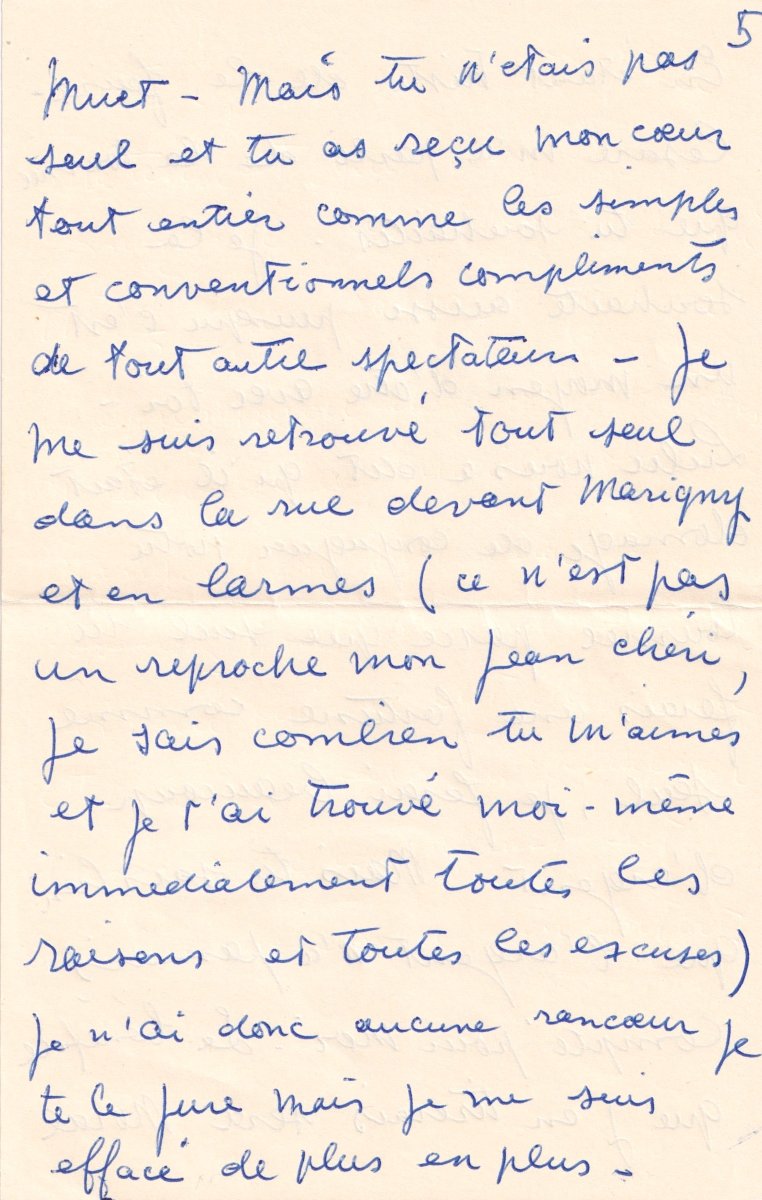 5
muet - Mais tu n'etais pas
seul et tu as reçu mon cœur
tout entier comme les simples
et conventionnels compliments
de tout autre spectateur - Je
me suis retrouvé tout seul
dans la rue devant Marigny
et en larmes (ce n'est pas
un reproche mon Jean chéri,
je sais combien tu m'aimes
et je t'ai trouvé moi-même
immediatement toutes les
raisons et toutes les excuses)
je n'ai donc aucune rancœur je
te le jure mais je me suis
effacé de plus en plus -